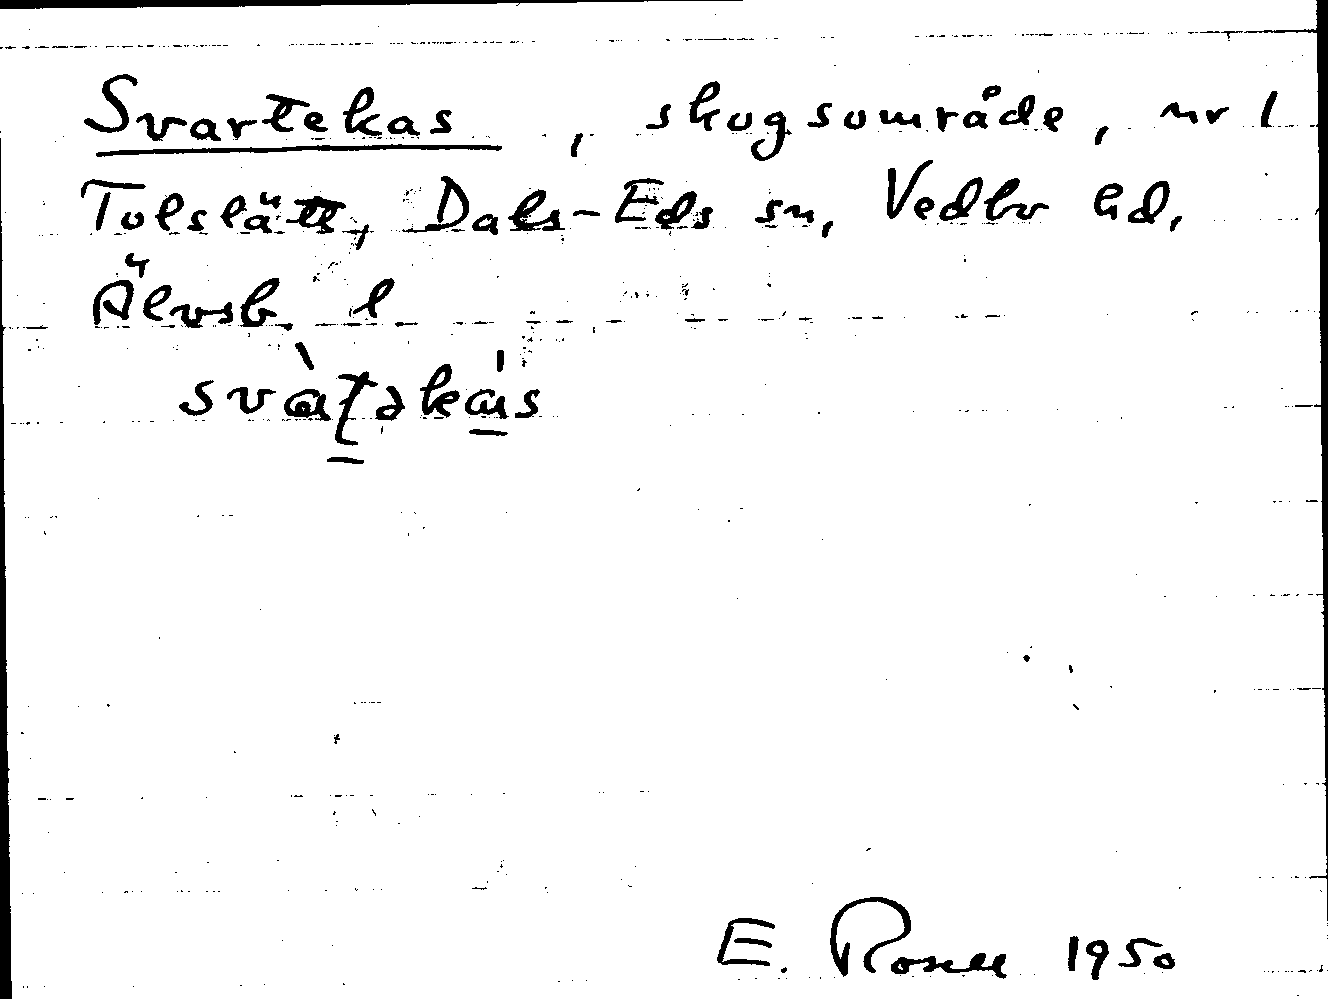 Svartekas, skogsområde, nr 1
Tolslätt, Dals-Eds sn, Vedbo hd,
Älvsb. l
svàʈəkás
E. Rosell 1950